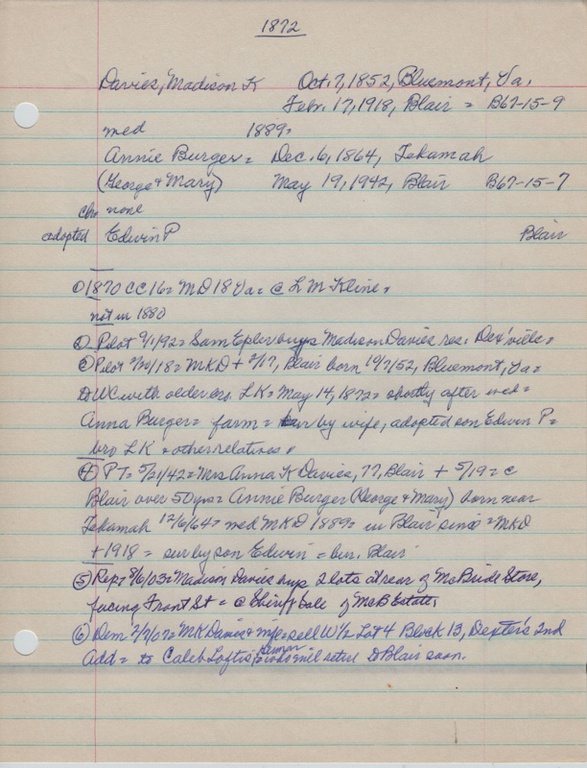 1872
Davies, Madison K Oct. 7, 1852, Bluemont, Va.
Febr. 17, 1918, Blair = B67-15-9
med 1889=
Annie Burger = Dec. 6, 1864, Tekamah
(George & Mary) May 19, 1942, Blair B67-15-7
chn none
adopted Edwin P Blair
① 1870 CC 16 = MD 18 Va = @ L M Kline =
not in 1880
② Pilot 9/1/92 = Sam Epler buys Madison Davies res. Dext'ville =
③ Pilot 2/20/18 = MKD + 2/17, Blair born 10/7/52, Bluemont, Va =
to WC with older bro. LK = May 14, 1872 = shortly after med =
Anna Burger = farm = sur by wife, adopted son Edwin P =
bro LK = other relatives =
④ PT = 5/21/42 = Mrs Anna K Davies, 77, Blair + 5/19 = c
Blair over 50 yrs = Annie Burger (George & Mary) born near
Tekamah 12/6/64 = med MKD 1889 = in Blair since = MKD
+ 1918 = sur by son Edwin = bur. Blair
⑤ Rep = 8/6/03 = Madison Davies buys 2 lots at rear of McBride Store,
facing Front St = @ Sheriff Sale of McB Estate,
⑥ Dem 2/7/07 = MK Davies & wife sell W ½ Lot 4 Block 13, Dexter's 2nd
Add = to Caleb Loftis, who will retire to Blair soon.